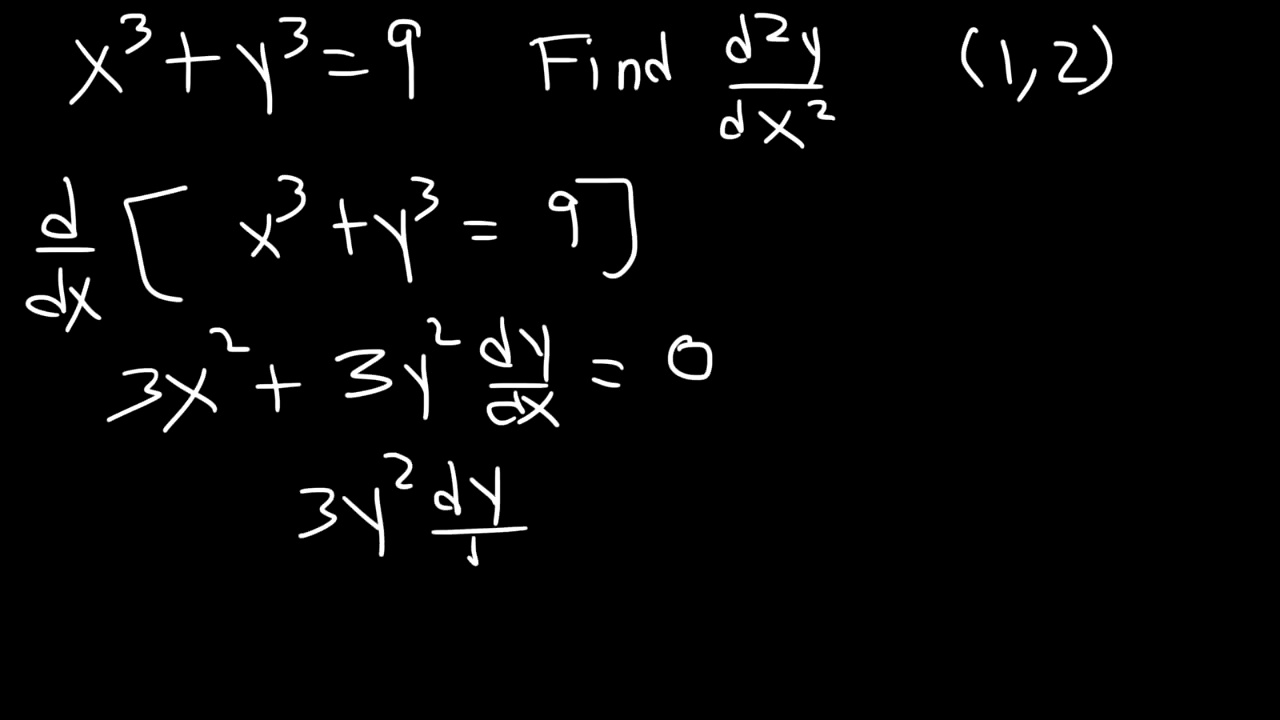 x³ + y³ = 9 Find d²y/dx² (1,2)
d/dx [ x³ + y³ = 9 ]
3x² + 3y² dy/dx = 0
3y² dy/